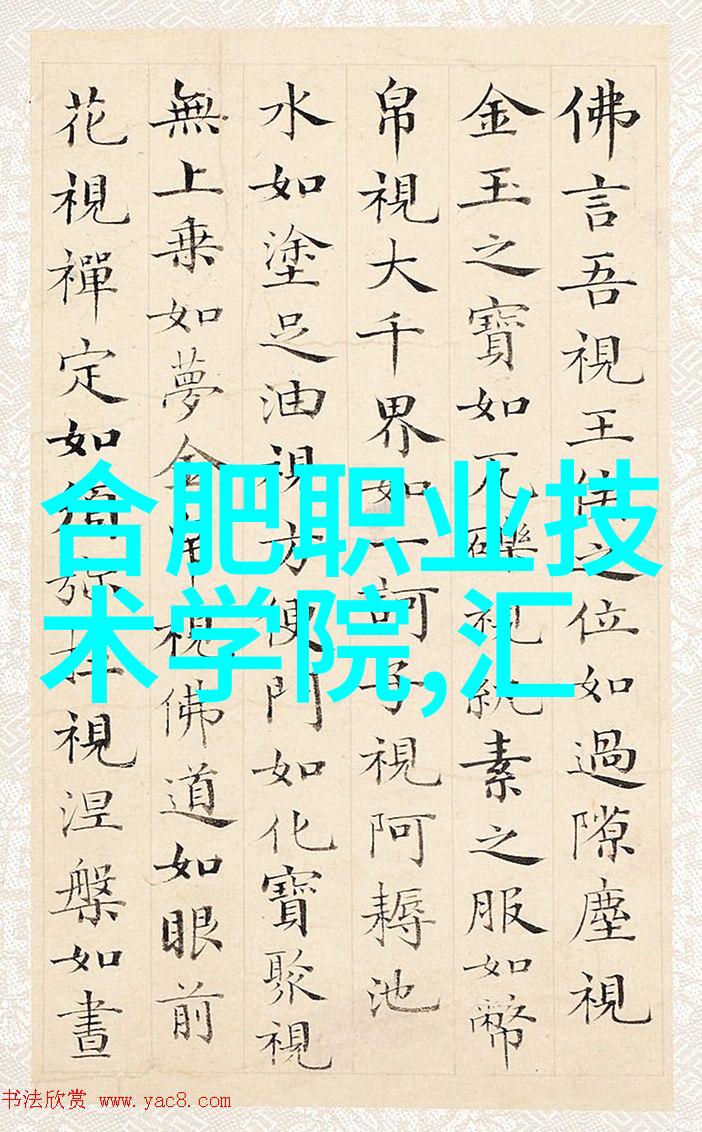 佛言吾視王侯之位如過隙塵視
金玉之寶如瓦礫視紈素之服如幣
帛視大千界如一訶子視阿耨池
水如塗足油視方便門如化寶聚視
無上乗如夢金帛視佛道如眼前
花視禪定如須弥柱視涅槃如晝
合肥职业技
术学院,汇
书法欣赏 www.yac8.com